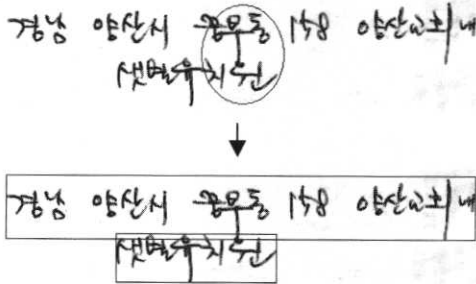 경남 양산시 중부동 158 양산교회내
샛별유치원
경남 양산시 중부동 158 양산교회내
샛별유치원